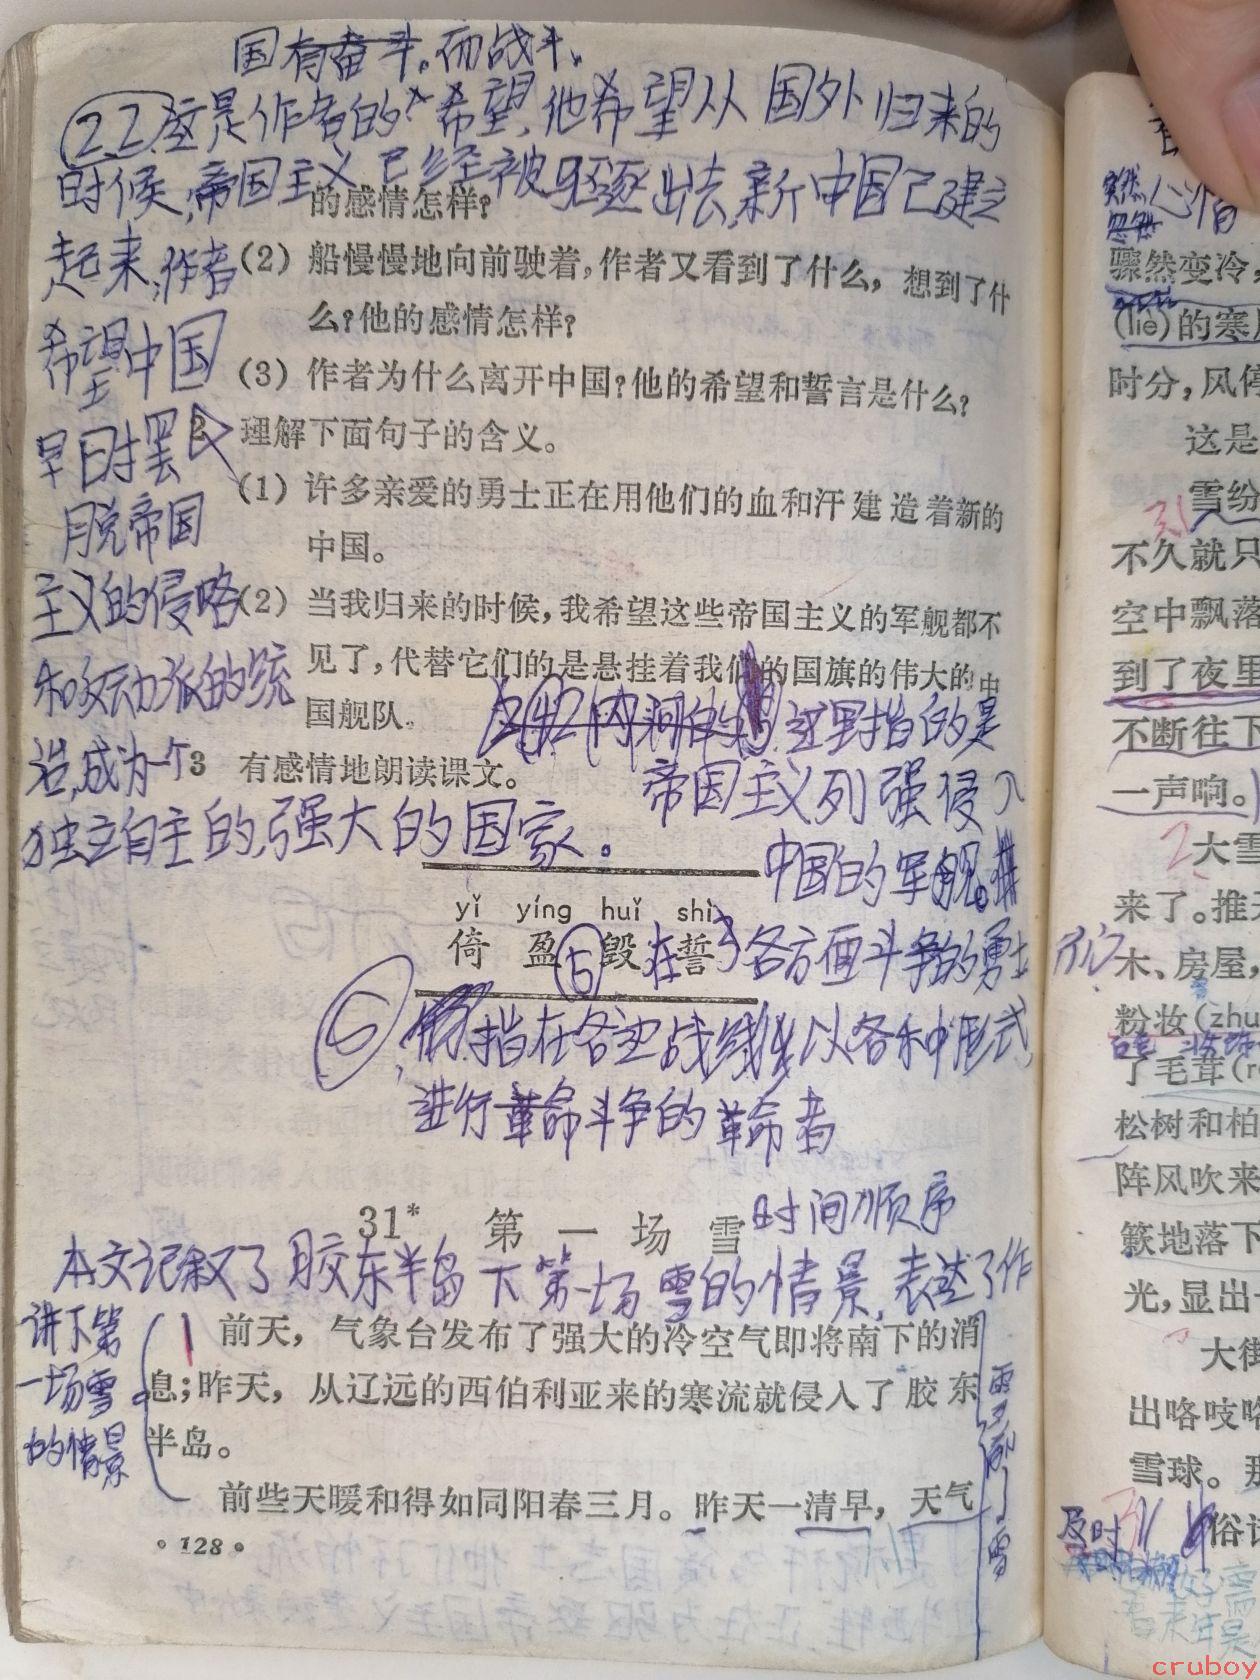 国有奋斗。而战斗、
2.2 这是作者的希望,他希望从国外归来的
时候,帝国主义已经被驱逐出去,新中国已建立
的感情怎样?
起来,作者
(2) 船慢慢地向前驶着,作者又看到了什么,想到了什
么?他的感情怎样?
希望中国
(3) 作者为什么离开中国?他的希望和誓言是什么?
早日摆
2 理解下面句子的含义。
(1) 许多亲爱的勇士正在用他们的血和汗建造着新的
中国。
脱帝国
主义的侵略
(2) 当我归来的时候,我希望这些帝国主义的军舰都不
见了,代替它们的是悬挂着我们的国旗的伟大的中
国舰队。
和反动派的统
这里指的是
治,成为一个
3 有感情地朗读课文。
帝国主义列强侵入
独立自主的,强大的国家。
中国的军舰。
yǐ yíng huǐ shì
倚 盈 毁 誓
5 在各方面斗争的勇士
6 指在各条战线以各种形式,
进行革命斗争的革命者
31* 第一场雪
时间顺序
本文记叙了胶东半岛下第一场雪的情景,表达了作
讲下第
一场雪
的情景
1 前天,气象台发布了强大的冷空气即将南下的消
息;昨天,从辽远的西伯利亚来的寒流就侵入了胶东
半岛。
前些天暖和得如同阳春三月。昨天一清早,天气
·128·
突然
忽然
心情
骤然变冷,
(liè)的寒
时分,风停
这是
31 雪纷
不久就只
空中飘落
到了夜里
不断往下
一声响。
2 大雪
来了。推
木、房屋,
粉妆(zhu
了毛茸(r
松树和柏
阵风吹来
簌地落下
光,显出
大街
出咯吱咯
雪球。那
及时
俗话
cruboy